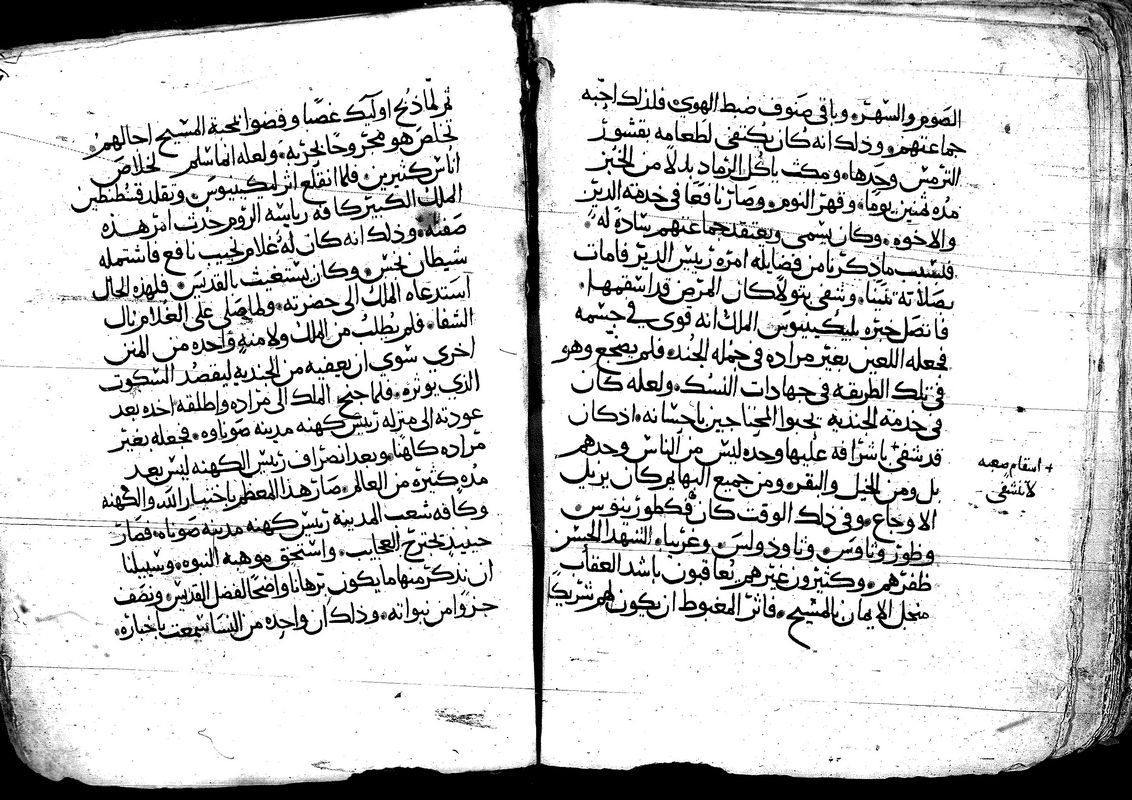 الصوم والسهر، وباقي صنوف ضبط الهوى فلذلك احبه
جماعتهم، وذلك انه كان يكتفى لطعامه بقشور
الترمس وحدها، ومكث ياكل الرماد بدلاً من الخبز
مده ثمنين يوماً، وقهر النوم، وصار نافعاً في خدمة الدير
والاخوه، وكان يسمى ويعتقد جماعتهم سادة له،
فلسبب ما ذكرنا من فضايله امره رييس الدير فامات
بصلاته تنيناً، وشفى بتولاً كان المرض قد اسقمها،
فاتصل خبره بليكينيوس الملك انه قوى في جسمه
فجعله اللعين بغير مراده في جمله الجند، فلم يضجع وهو
في تلك الطريقه في جهادات النسك، ولعله كان
في خدمة الجنديه يحبوا المحتاجين باحسانه، اذ كان
قد شفى باشرافه عليها وحده ليس من الناس وحدهم
بل ومن الخيل والبقر، ومن جميع البهايم كان يزيل
الاوجاع، وفي ذلك الوقت كان فكطورينوس
وظور وثاوس، وثاوذولس، وغريبا، الشهدا الحسن
ظفرهم، وكثيرون غيرهم يعاقبون باشد العقاب
منجل الايمان بالمسيح، فاثر المغبوط ان يكون لهم شريكا
+ اسقام صعبه
لا تشفى
ثم لماذبح اوليك غصباً وقضوا لمحبة المسيح اجالهم
تخلص هو مجروحاً بحربه، ولعله انما سلم لخلاص
اناس كثيرين، فلما انقلع اثر ليكينيوس، وتقلد قسطنطين
الملك الكبير كافه رياسه الروم حدث امر هذه
صفته، وذلك انه كان له غلام نجيب نافع فاشتمله
شيطان نجس، وكان يستغيث بالقديس، فلهذه الحال
استدعاه الملك الى حضرته، ولما صلى على الغلام نال
الشفا، فلم يطلب من الملك ولا منه واحده من المنن
اخري سوى ان يعفيه من الجنديه ليقصد السكوت
الذي يوثره، فلما جنح الملك الى مراده واطلقه اخده بعد
عودته الى منزله رييس كهنه مدينه صوناوه، فجعله بغير
مراده كاهنا، وبعد انصراف رييس الكهنه ليس بعد
مده كثيره من العالم، صار هذا المعظم باختيار الله والكهنه
وكافه شعب المدينه رييس كهنه مدينه صوناه، فصار
حينيذ يخترح العجايب، واستحق موهبه النبوه، وسبيلنا
ان نذكر منها ما يكون برهانا واضحاً لفضل القديس، ونصف
جزوا من نبواته، وذلك ان واحده من النسا سمعت باخباره،